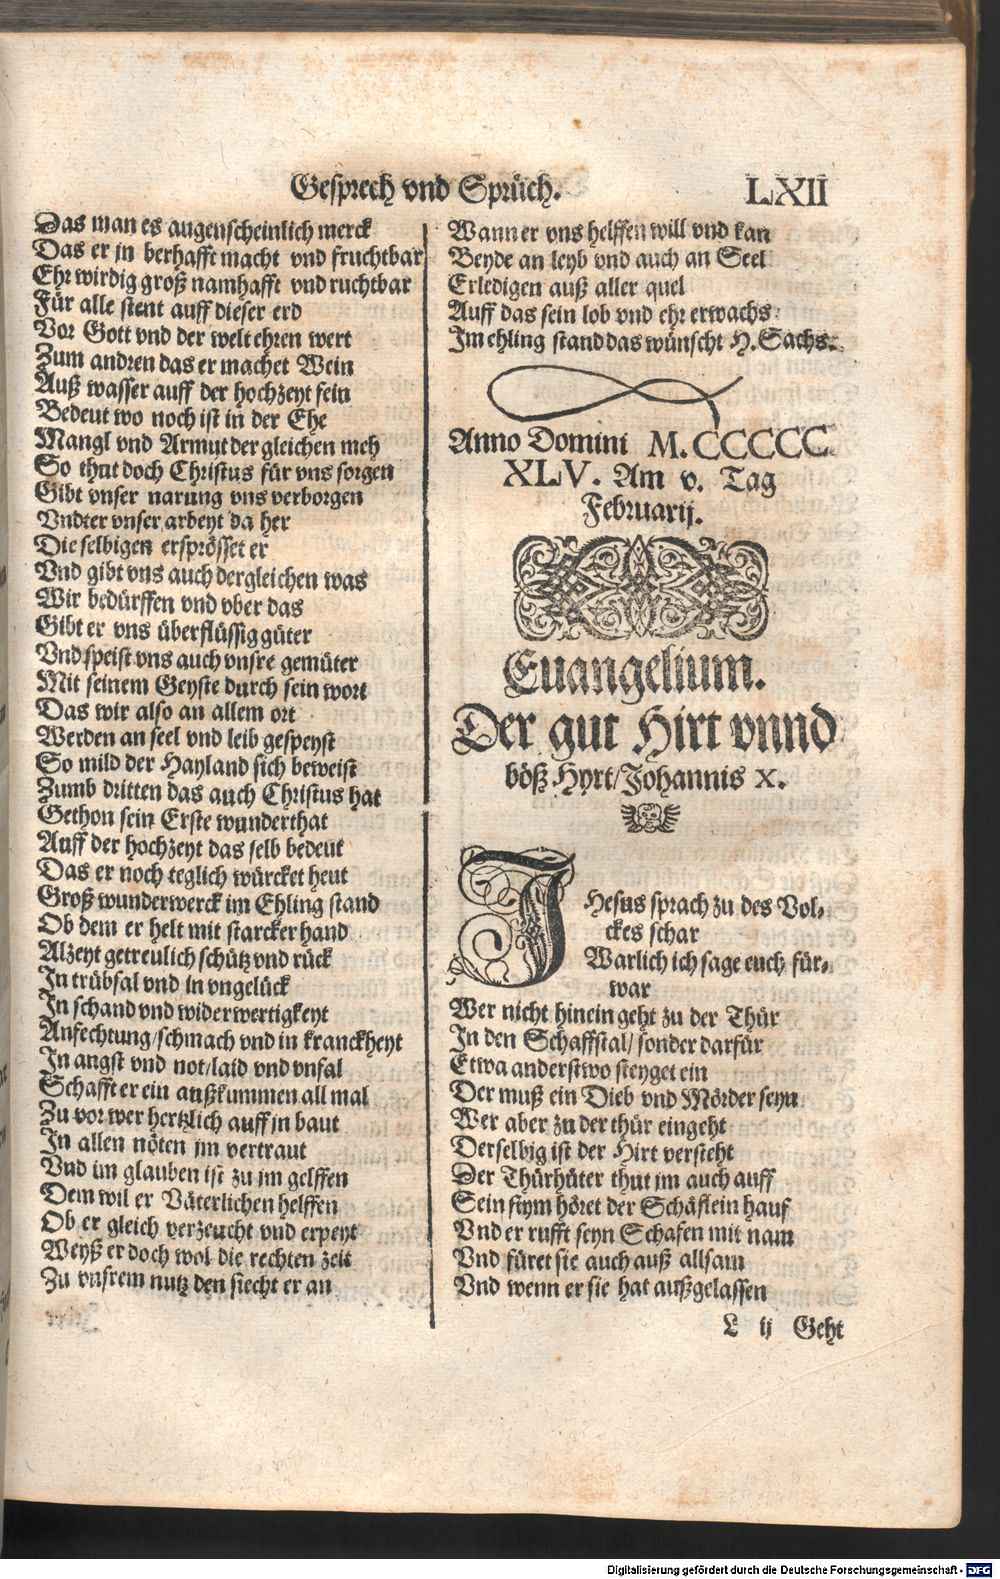 Gesprech vnd Sprüch. LXII
Das man es augenscheinlich merck
Das er jn berhafft macht vnd fruchtbar
Ehr wirdig groß namhafft vnd ruchtbar
Für alle stent auff dieser erd
Vor Gott vnd der welt ehren wert
Zum andren das er machet Wein
Auß wasser auff der hochzeyt fein
Bedeut wo noch ist in der Ehe
Mangl vnd Armut der gleichen meh
So thut doch Christus für vns sorgen
Gibt vnser narung vns verborgen
Vndter vnser arbeyt da her
Die selbigen ersprösset er
Vnd gibt vns auch dergleichen was
Wir bedürffen vnd vber das
Gibt er vns überflüssig güter
Vnd speist vns auch vnsre gemüter
Mit seinem Geyste durch sein wort
Das wir also an allem ort
Werden an seel vnd leib gespeyst
So mild der Hayland sich beweist
Zumb dritten das auch Christus hat
Gethon sein Erste wunderthat
Auff der hochzeyt das selb bedeut
Das er noch teglich würcket heut
Groß wunderwerck im Ehling stand
Ob dem er helt mit starcker hand
Alzeyt getreulich schütz vnd rück
In trübsal vnd in vngelück
In schand vnd widerwertigkeyt
Anfechtung/schmach vnd in kranckheyt
In angst vnd not/laid vnd vnfal
Schafft er ein außkummen all mal
Zu vor wer hertzlich auff jn baut
In allen nöten jm vertraut
Vnd im glauben ist zu jm gelffen
Dem wil er Väterlichen helffen
Ob er gleich verzeucht vnd erpeyt
Weyß er doch wol die rechten zeit
Zu vnsrem nutz den siecht er an
Wann er vns helffen will vnd kan
Beyde an leyb vnd auch an Seel
Erledigen auß aller quel
Auff das sein lob vnd ehr erwachs
Im ehling stand das wünscht H. Sachs.
Anno Domini M. CCCCC
XLV. Am v. Tag
Februarij.
Euangelium.
Der gut Hirt vnnd
böß Hyrt/Johannis X.
JHesus sprach zu des Vol-
ckes schar
Warlich ich sage euch für-
war
Wer nicht hinein geht zu der Thür
In den Schaffstal/ sonder darfür
Etwa anderstwo steyget ein
Der muß ein Dieb vnd Mörder seyn
Wer aber zu der thür eingeht
Derselbig ist der Hirt versteht
Der Thürhüter thut jm auch auff
Sein stym höret der Schäflein hauf
Vnd er rufft seyn Schafen mit nam
Vnd füret sie auch auß allsam
Vnd wenn er sie hat außgelassen
L ij Geht
Digitalisierung gefördert durch die Deutsche Forschungsgemeinschaft - DFG